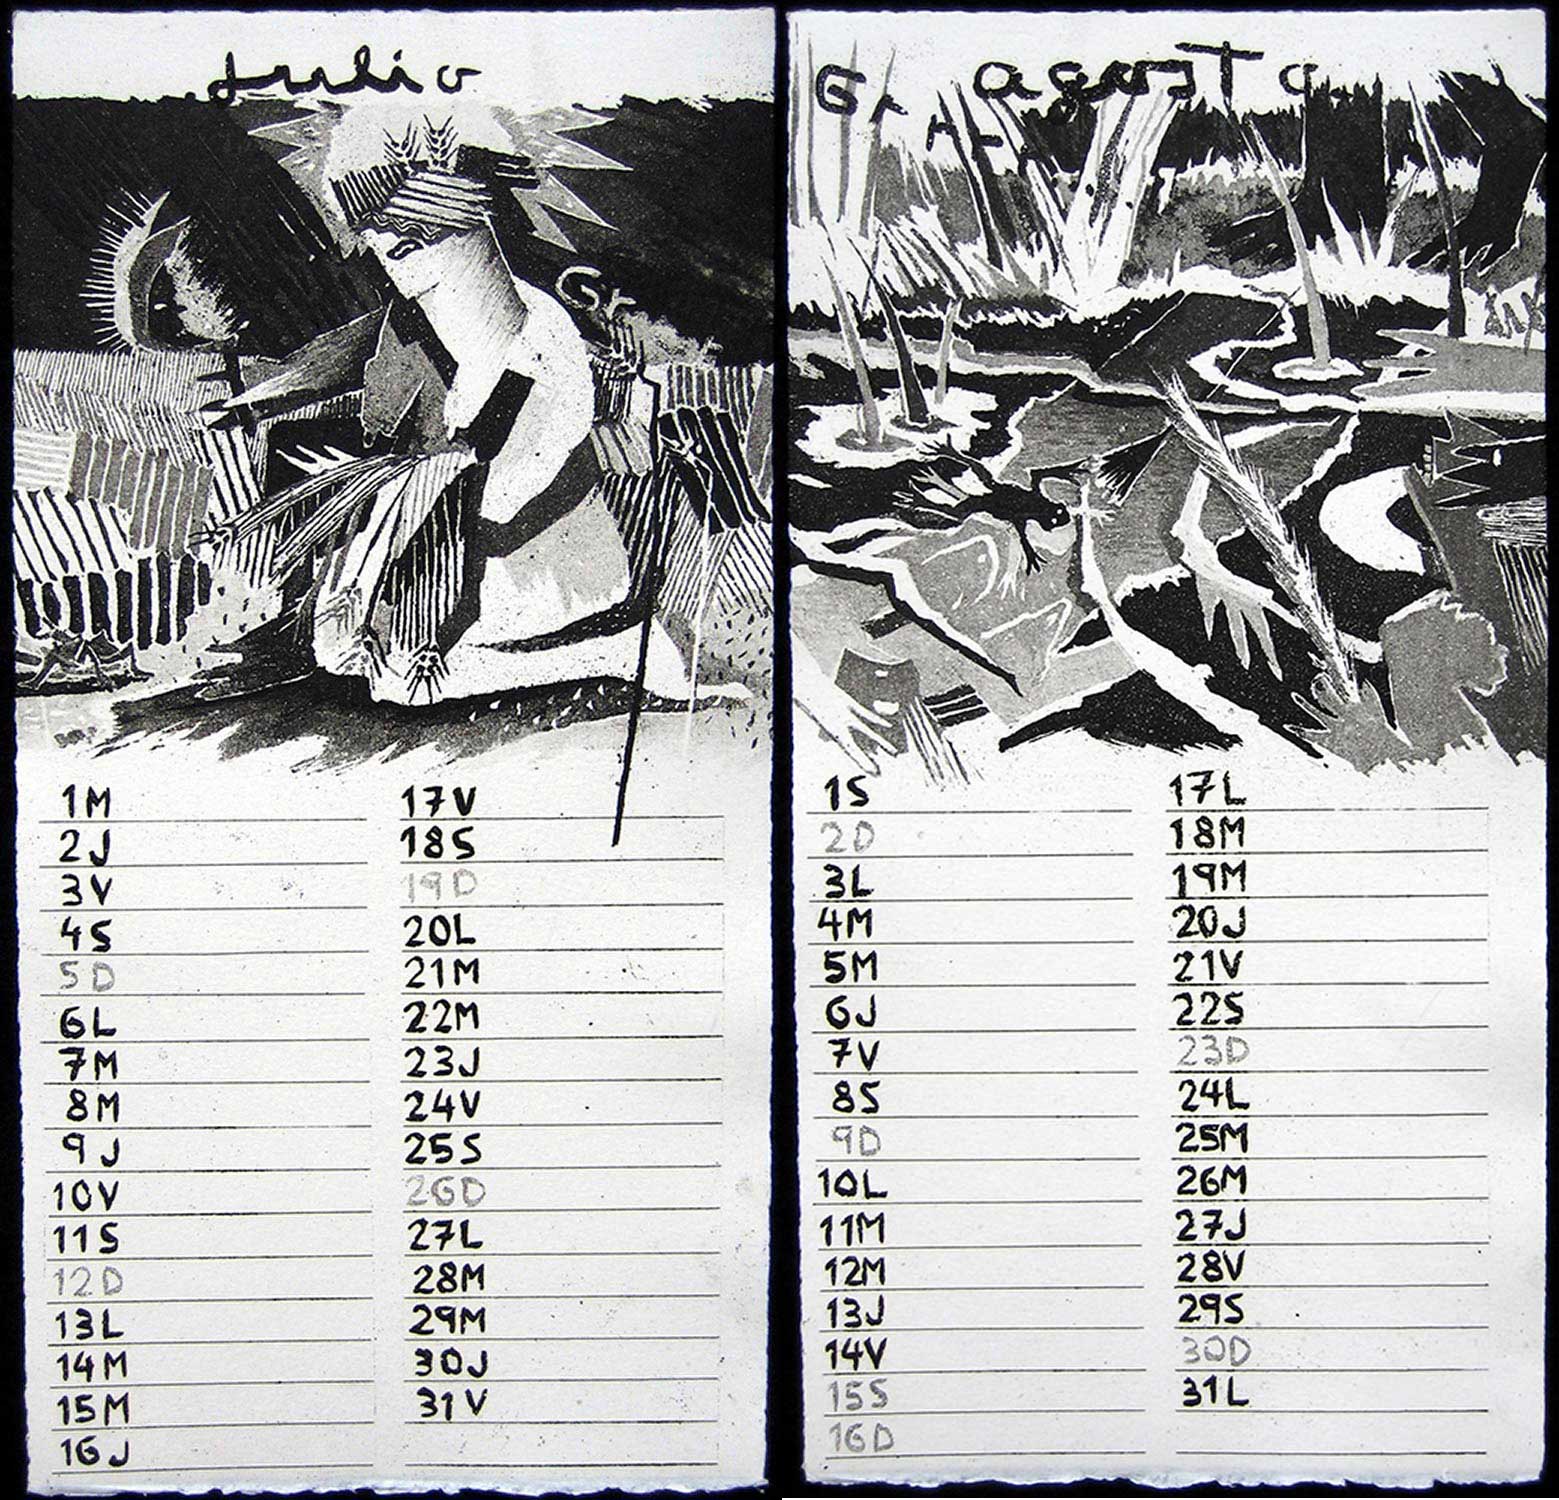 julio
Gr
1M
2J
3V
4S
5D
6L
7M
8M
9J
10V
11S
12D
13L
14M
15M
16J
17V
18S
19D
20L
21M
22M
23J
24V
25S
26D
27L
28M
29M
30J
31V
agosto
1S
2D
3L
4M
5M
6J
7V
8S
9D
10L
11M
12M
13J
14V
15S
16D
17L
18M
19M
20J
21V
22S
23D
24L
25M
26M
27J
28V
29S
30D
31L